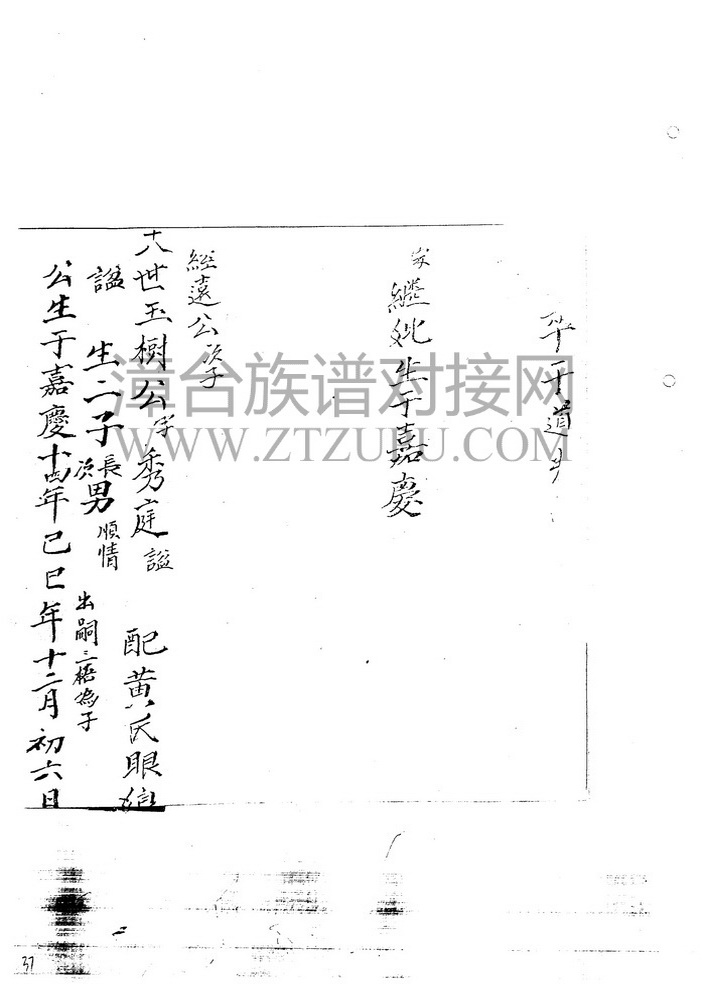 卒于道
繼妣生于嘉慶
經遠公次子
六世玉樹公字秀庭諡 配黃氏眼娘
諡 生二子 長 次 男 順情 出嗣三梧為子
公生于嘉慶十四年己巳年十二月初六日
漳台族谱对接网
WWW.ZTZUPU.COM
37